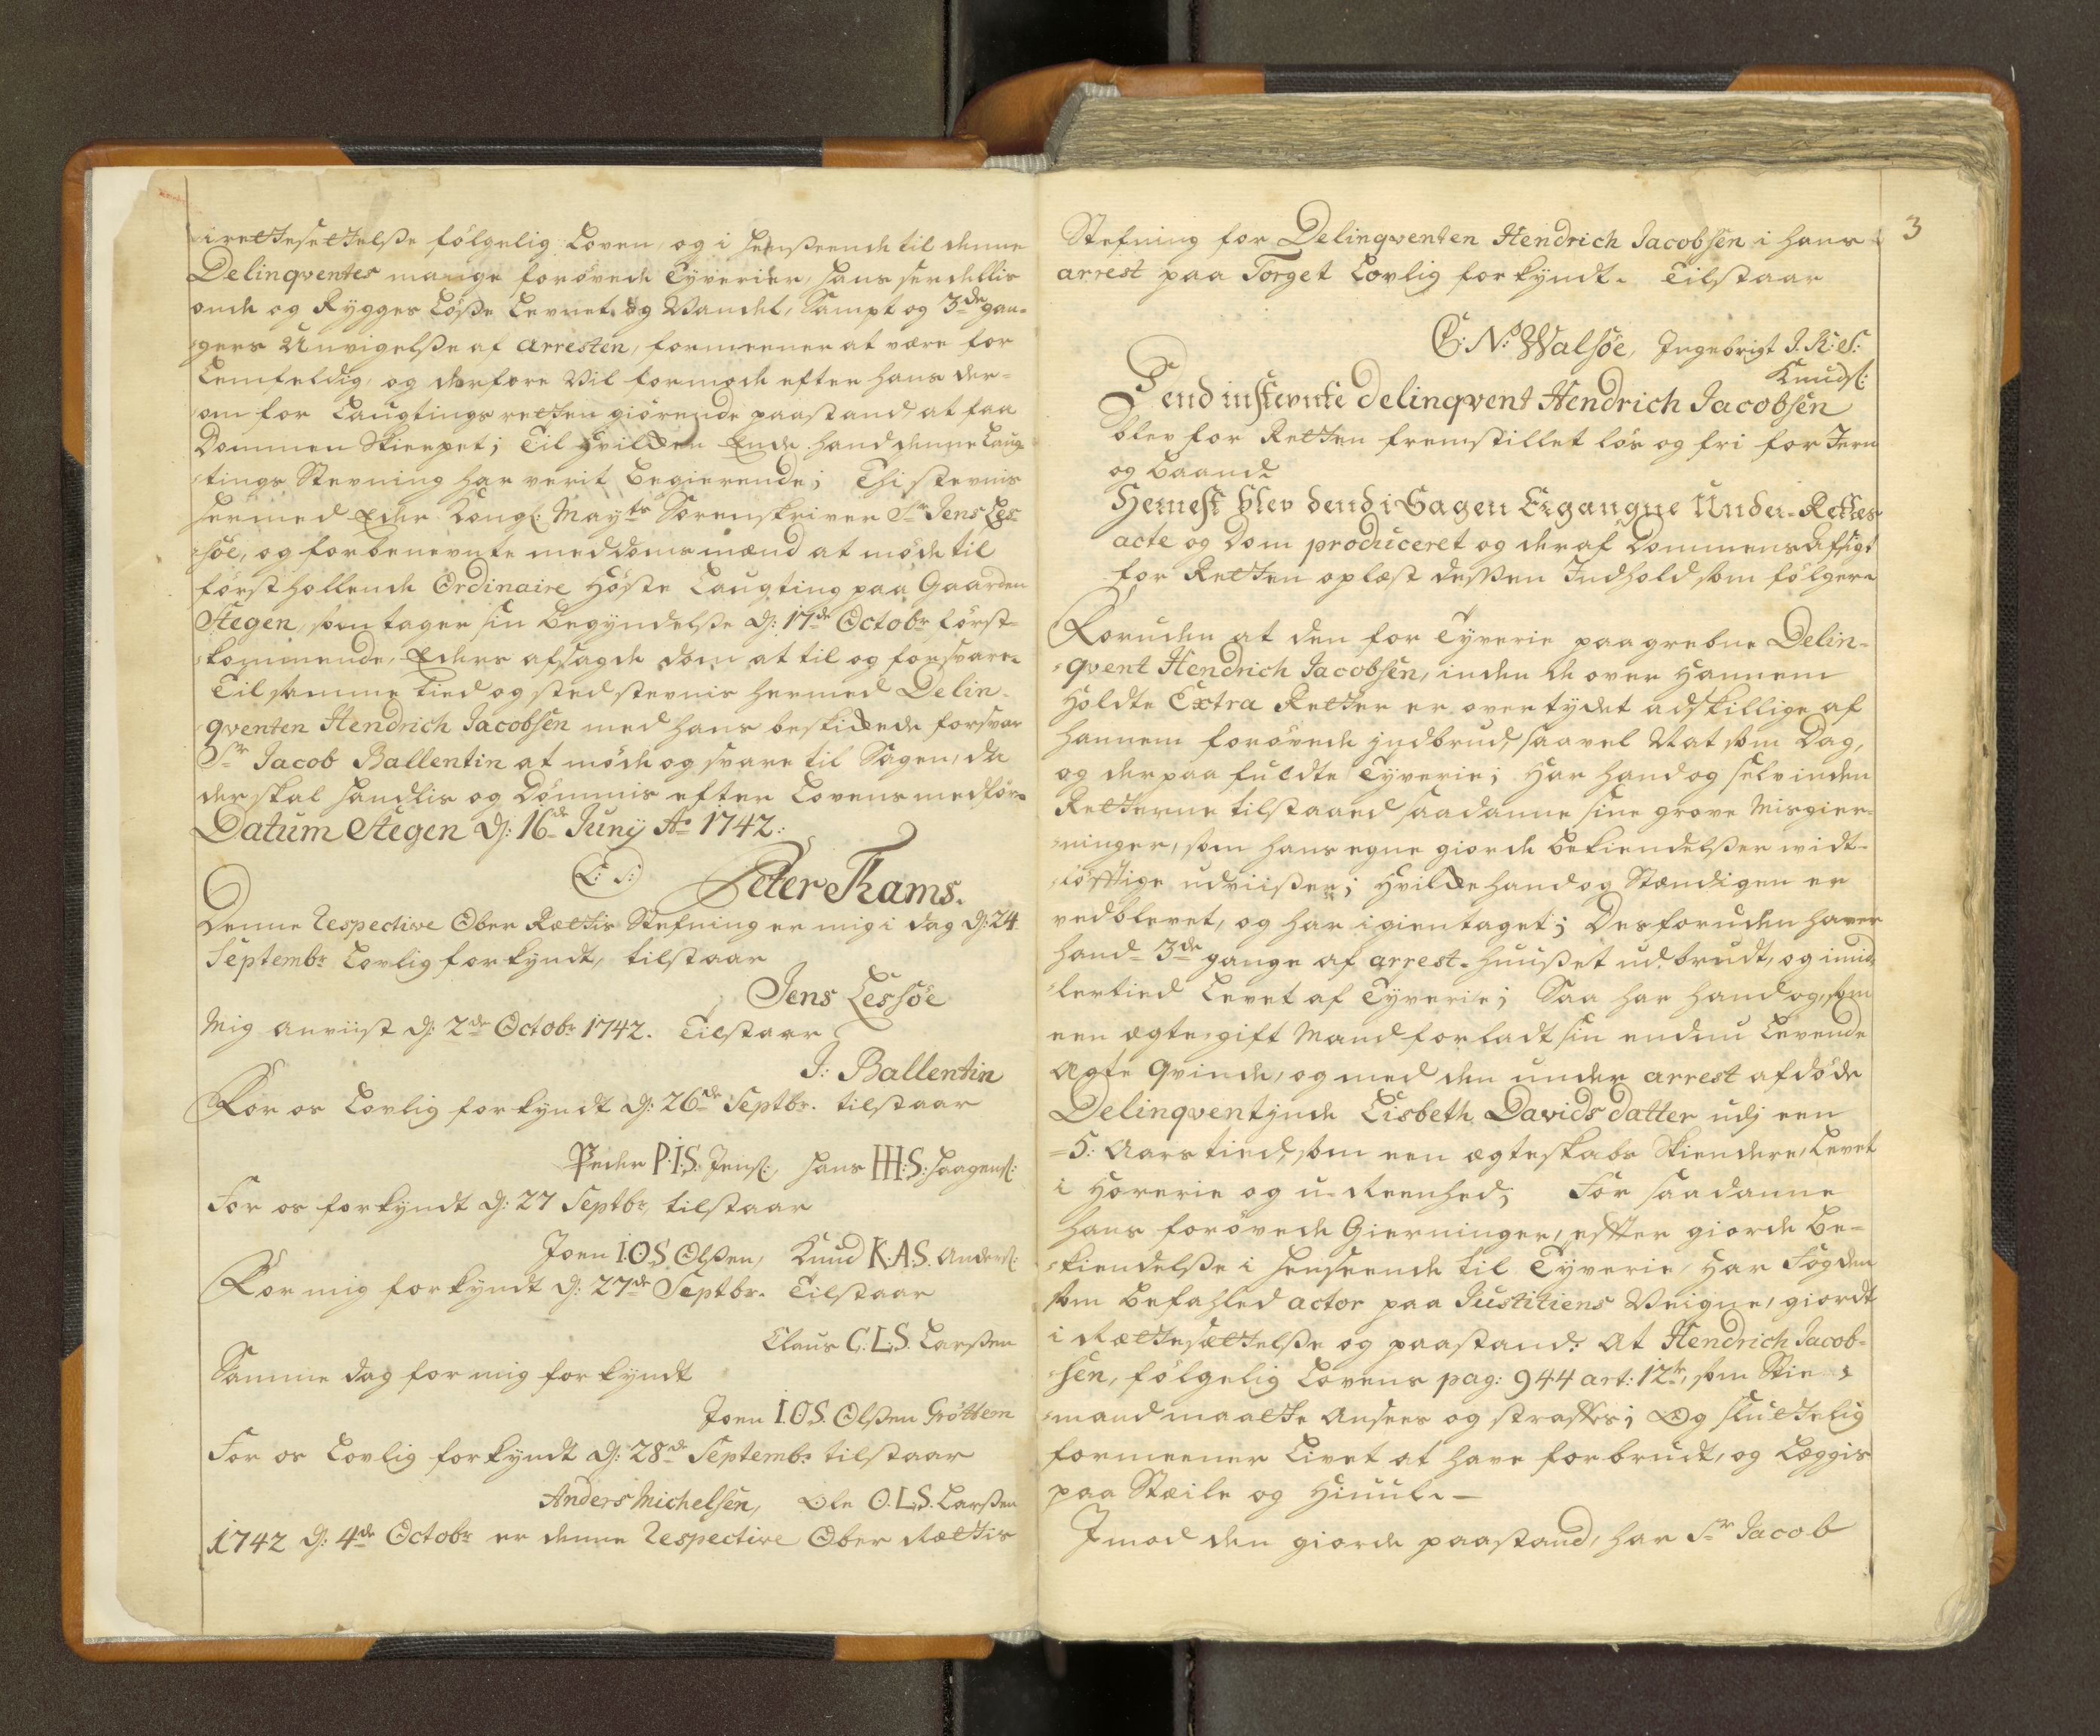 irettesettelsse følgelig Loven, og i henseende til denne
Delinqventes mange forøvede Tyverier, hans serdellis
onde og Rygges Løsse Levnet og Vandel, Sampt og 3de gan-
gers Undvigelsse af arresten, formeener at være for
Lemfeldig, og derfore Vil formode efter hans der-
om for Laugtings retten giørende paastand, at faa
Dommen Skierpet; Til hvilken Ende hand denne Laug-
tings Stevning har verit Begierende; Thi stevnis
hermed Eder Kongl: Mayts Sorenskriver Sr Jens Les-
søe, og forbenevnte meddoms mænd at møde til
først hollende Ordinaire Høste Laugting paa Gaarden
Stegen, som tager sin Begyndelsse d: 17de Octobr først-
kommende, Eders afsagde dom at til og forsvare.
Til samme tied og sted stevnis hermed Delin-
qventen Hendrich Jacobsen med hans beskikkede forsvar
Sr Jacob Ballentin at møde og svare til Sagen, da
der skal handlis og Dømmis efter Lovens medfør.
Datum Stegen d: 16de Junij Ao 1742.
L: S: Peter Thams.
Denne Respective Ober Rettis Stefning er mig i dag d: 24
Septembr Lovlig forkyndt, tilstaar
Jens Lessøe
Mig anviist d: 2de Octobr 1742. Tilstaar
J: Ballentin
For os Lovlig forkyndt d: 26de Septbr. tilstaar
Peder P.I.S. Jens:, Hans H.H:S: Haagens:
For os forkyndt d: 27 Septbr, tilstaar
Joen I.O.S. Olssen, Knud K.A.S. Anders:
For mig forkyndt d: 27de Septbr. Tilstaar
Claus C.L.S. Larssen
Samme dag for mig forkyndt
Joen I.O.S. Olssen Grøttem
For os Lovlig forkyndt d: 28de Septembr tilstaar
Anders Michelsen, Ole O.L.S. Larssen
1742 d: 4de Octobr er denne Respective Ober Rettis
3
Stefning for Delinqventen Hendrich Jacobsen i hans
arrest paa Torget Lovlig forkyndt. Tilstaar
C: N: Walsøe, Ingebrigt I.K:S:
Knuds:
Dend instevnte delinqvent Hendrich Jacobsen
blev for Retten fremstillet løs og fri for Jern
og Baand.
Hernest blev dend i Sagen Ergangne Under-Rettes
acte og Dom produceret og deraf Dommens Afsigt
for Retten oplæst dessen Indhold som følger.
Foruden at den for Tyverie paagrebne Delin-
qvent Hendrich Jacobsen, inden de over hannem
holdte Extra Retter er overtydet adskillige af
hannem forøvede jndbrud, saavel Nat som Dag,
og derpaa fuldte Tyverie; har hand og selv inden
Retterne tilstaaed saadanne sine grove Misgier-
ninger, som hans egne giorde bekiendelsser widt-
løfftige udviisser; hvilke hand og Stændigen er
vedblevet, og har igientaget; Desforuden haver
hand 3de gange af arrest-huusset udbrudt, og imid-
lertied Levet af Tyverie; Saa har hand og, som
een ægte gift Mand forladt sin endnu Levende
Ægte Qvinde, og med den under arrest afdøde
Delinqventjnde Lisbeth Davids datter udj een
5: Aars tied, som een ægteskabs Skiendere, Levet
i Horerie og u-Reenhed; For saadanne
hans forøvede Gierninger, effter giorde be-
kiendelsse i henseende til Tyverie, har Fogden
som befahled actor paa Justitiens Veigne, giordt
i Rættesættelsse og paastand: At Hendrich Jacob-
sen, følgelig Lovens pag: 944 art: 12te, som Stie-
mand maatte ansees og straffes; Og sluttelig
formeener Livet at have forbrudt, og Læggis
paa Steile og Hiuul. -
Imod den giorde paastand, har Sr Jacob